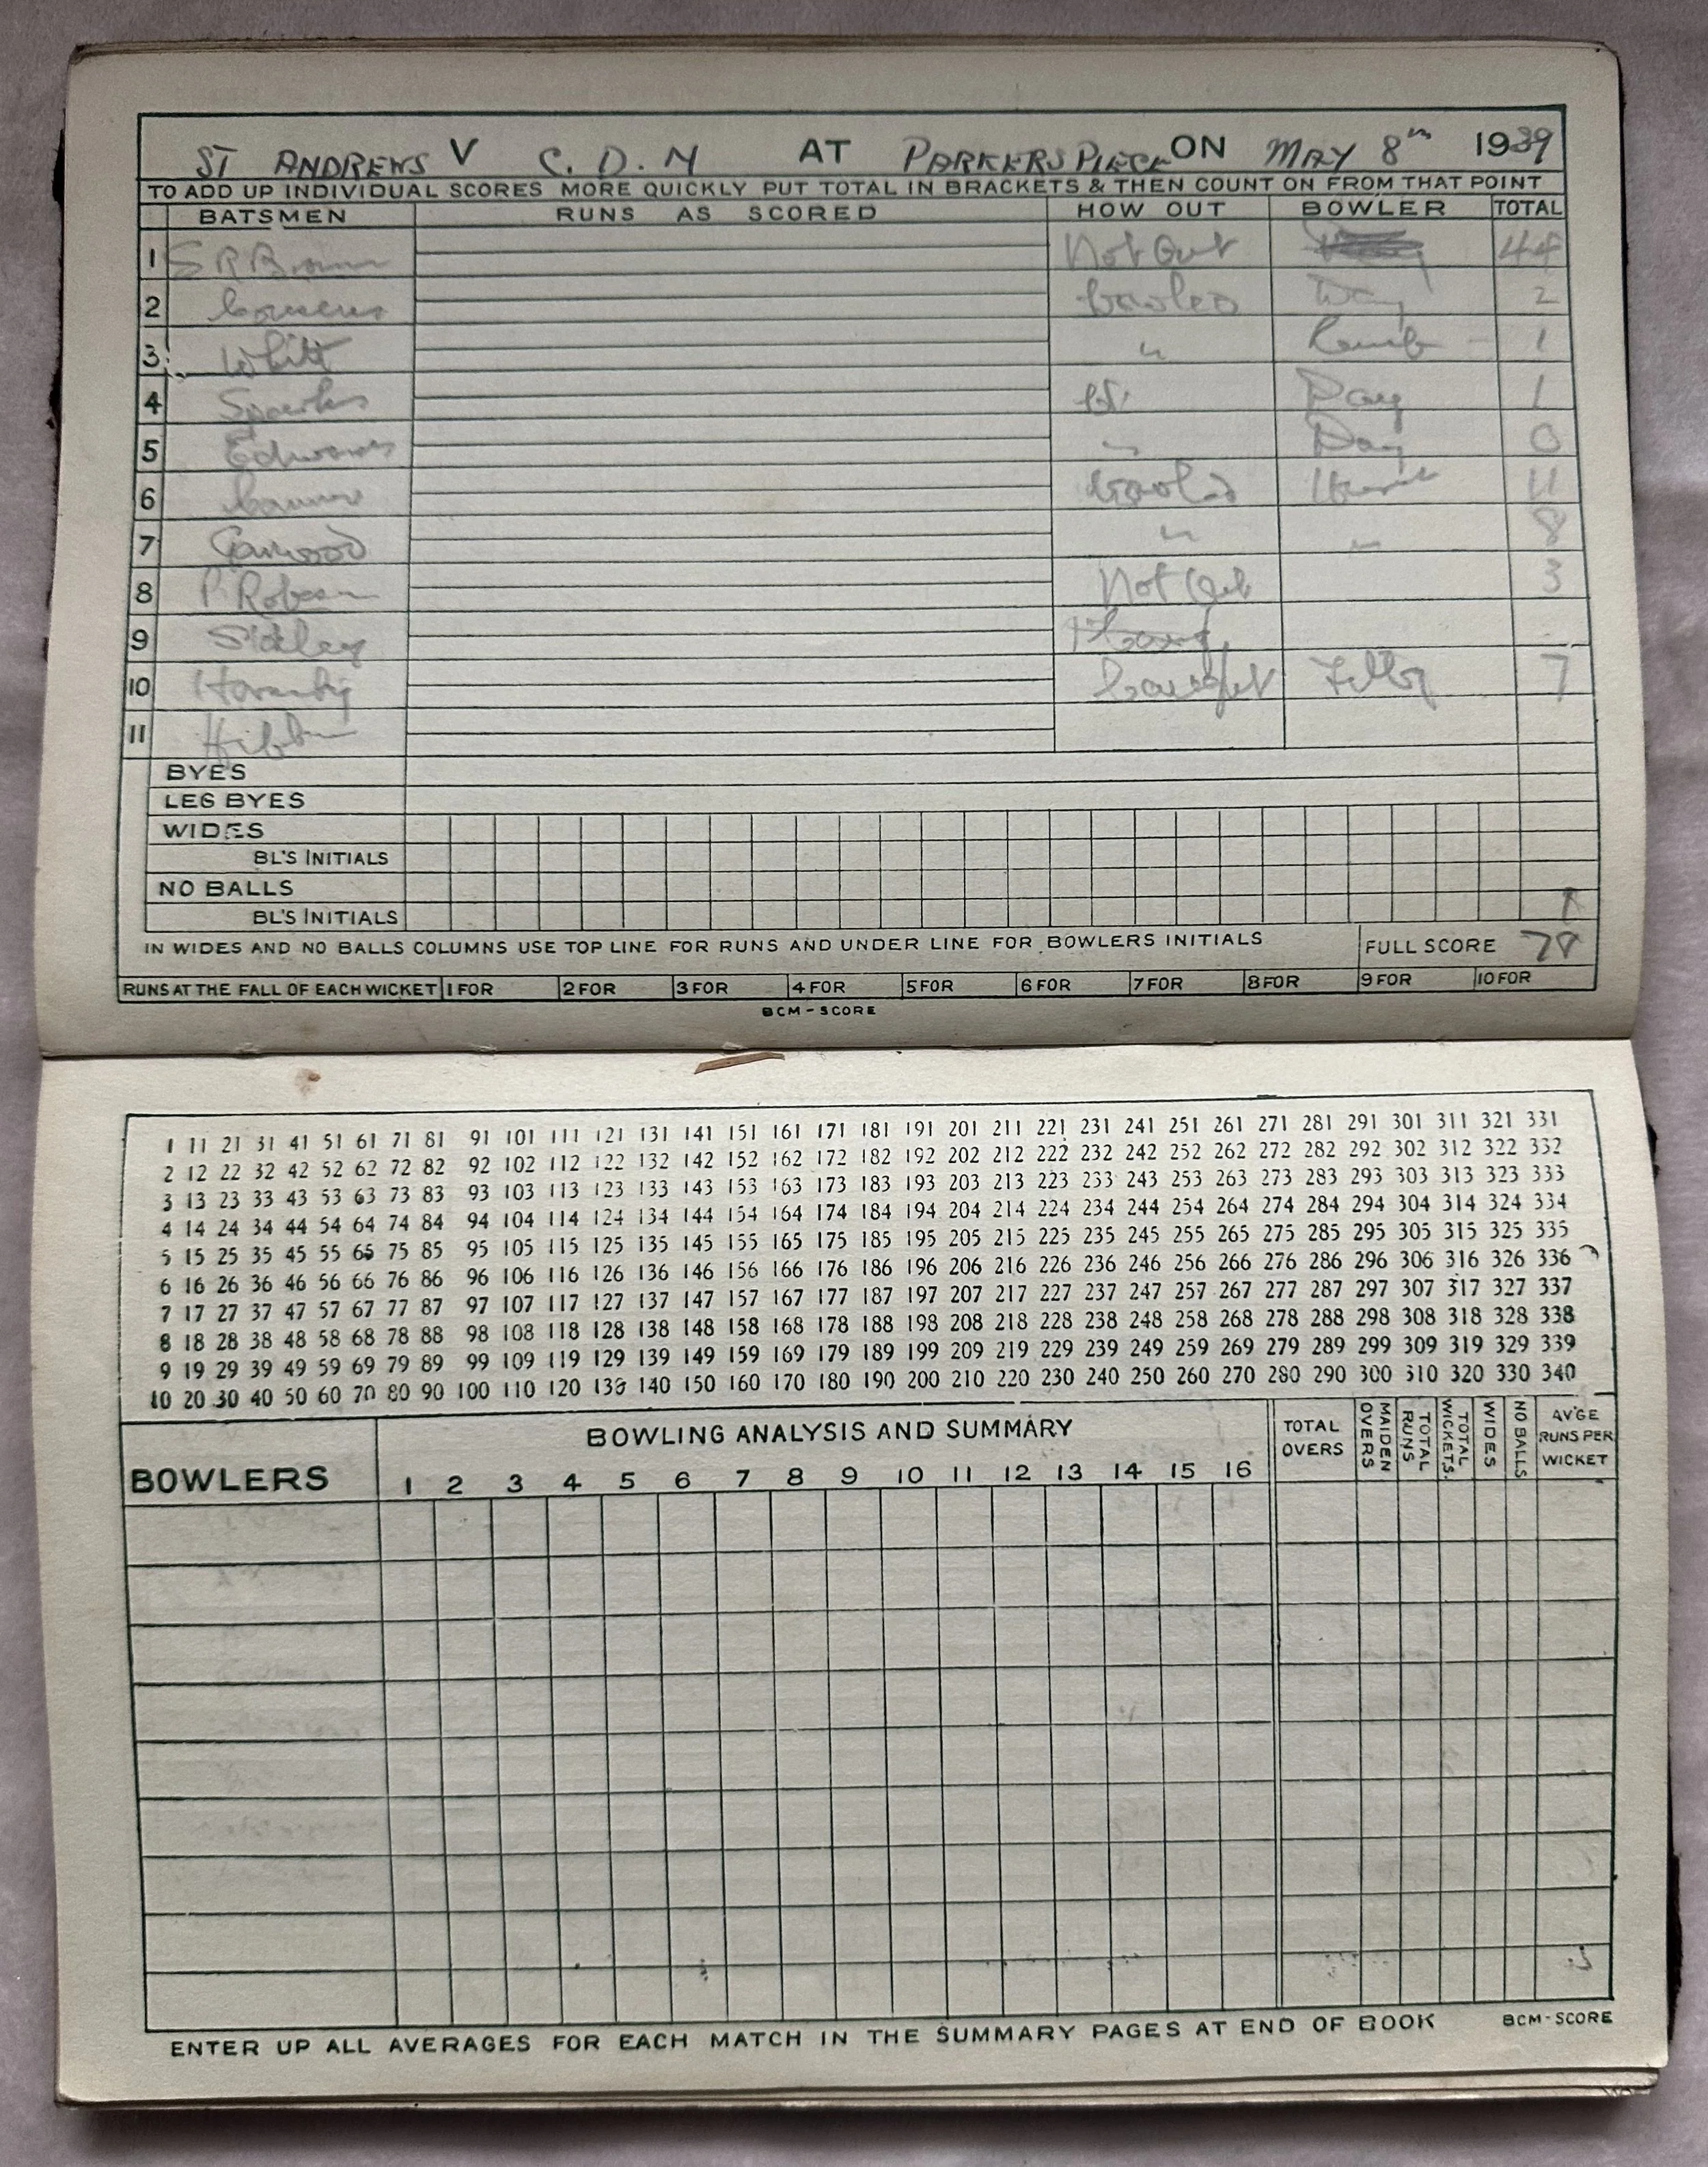 ST ANDREWS V C. D. M AT PARKERS PIECE ON MAY 8th 1939
TO ADD UP INDIVIDUAL SCORES MORE QUICKLY PUT TOTAL IN BRACKETS & THEN COUNT ON FROM THAT POINT
BATSMEN RUNS AS SCORED HOW OUT BOWLER TOTAL
1 S R Brown Not Out 44
2 bowled Day 2
3 Whitt " 1
4 Sparkes Day 1
5 Edwards " Day 0
6 bowled 11
7 Garwood " " 8
8 P Robson Not Out 3
9
10 Hornsby Caught 7
11
BYES
LEG BYES
WIDES
BL'S INITIALS
NO BALLS
BL'S INITIALS 1
IN WIDES AND NO BALLS COLUMNS USE TOP LINE FOR RUNS AND UNDER LINE FOR BOWLERS INITIALS FULL SCORE 78
RUNS AT THE FALL OF EACH WICKET 1 FOR 2 FOR 3 FOR 4 FOR 5 FOR 6 FOR 7 FOR 8 FOR 9 FOR 10 FOR
BCM-SCORE
1 11 21 31 41 51 61 71 81 91 101 111 121 131 141 151 161 171 181 191 201 211 221 231 241 251 261 271 281 291 301 311 321 331
2 12 22 32 42 52 62 72 82 92 102 112 122 132 142 152 162 172 182 192 202 212 222 232 242 252 262 272 282 292 302 312 322 332
3 13 23 33 43 53 63 73 83 93 103 113 123 133 143 153 163 173 183 193 203 213 223 233 243 253 263 273 283 293 303 313 323 333
4 14 24 34 44 54 64 74 84 94 104 114 124 134 144 154 164 174 184 194 204 214 224 234 244 254 264 274 284 294 304 314 324 334
5 15 25 35 45 55 65 75 85 95 105 115 125 135 145 155 165 175 185 195 205 215 225 235 245 255 265 275 285 295 305 315 325 335
6 16 26 36 46 56 66 76 86 96 106 116 126 136 146 156 166 176 186 196 206 216 226 236 246 256 266 276 286 296 306 316 326 336
7 17 27 37 47 57 67 77 87 97 107 117 127 137 147 157 167 177 187 197 207 217 227 237 247 257 267 277 287 297 307 317 327 337
8 18 28 38 48 58 68 78 88 98 108 118 128 138 148 158 168 178 188 198 208 218 228 238 248 258 268 278 288 298 308 318 328 338
9 19 29 39 49 59 69 79 89 99 109 119 129 139 149 159 169 179 189 199 209 219 229 239 249 259 269 279 289 299 309 319 329 339
10 20 30 40 50 60 70 80 90 100 110 120 130 140 150 160 170 180 190 200 210 220 230 240 250 260 270 280 290 300 310 320 330 340
BOWLERS BOWLING ANALYSIS AND SUMMARY TOTAL OVERS MAIDEN OVERS TOTAL RUNS TOTAL WICKETS. WIDES NO BALLS AV'GE RUNS PER WICKET
1 2 3 4 5 6 7 8 9 10 11 12 13 14 15 16
ENTER UP ALL AVERAGES FOR EACH MATCH IN THE SUMMARY PAGES AT END OF BOOK BCM-SCORE